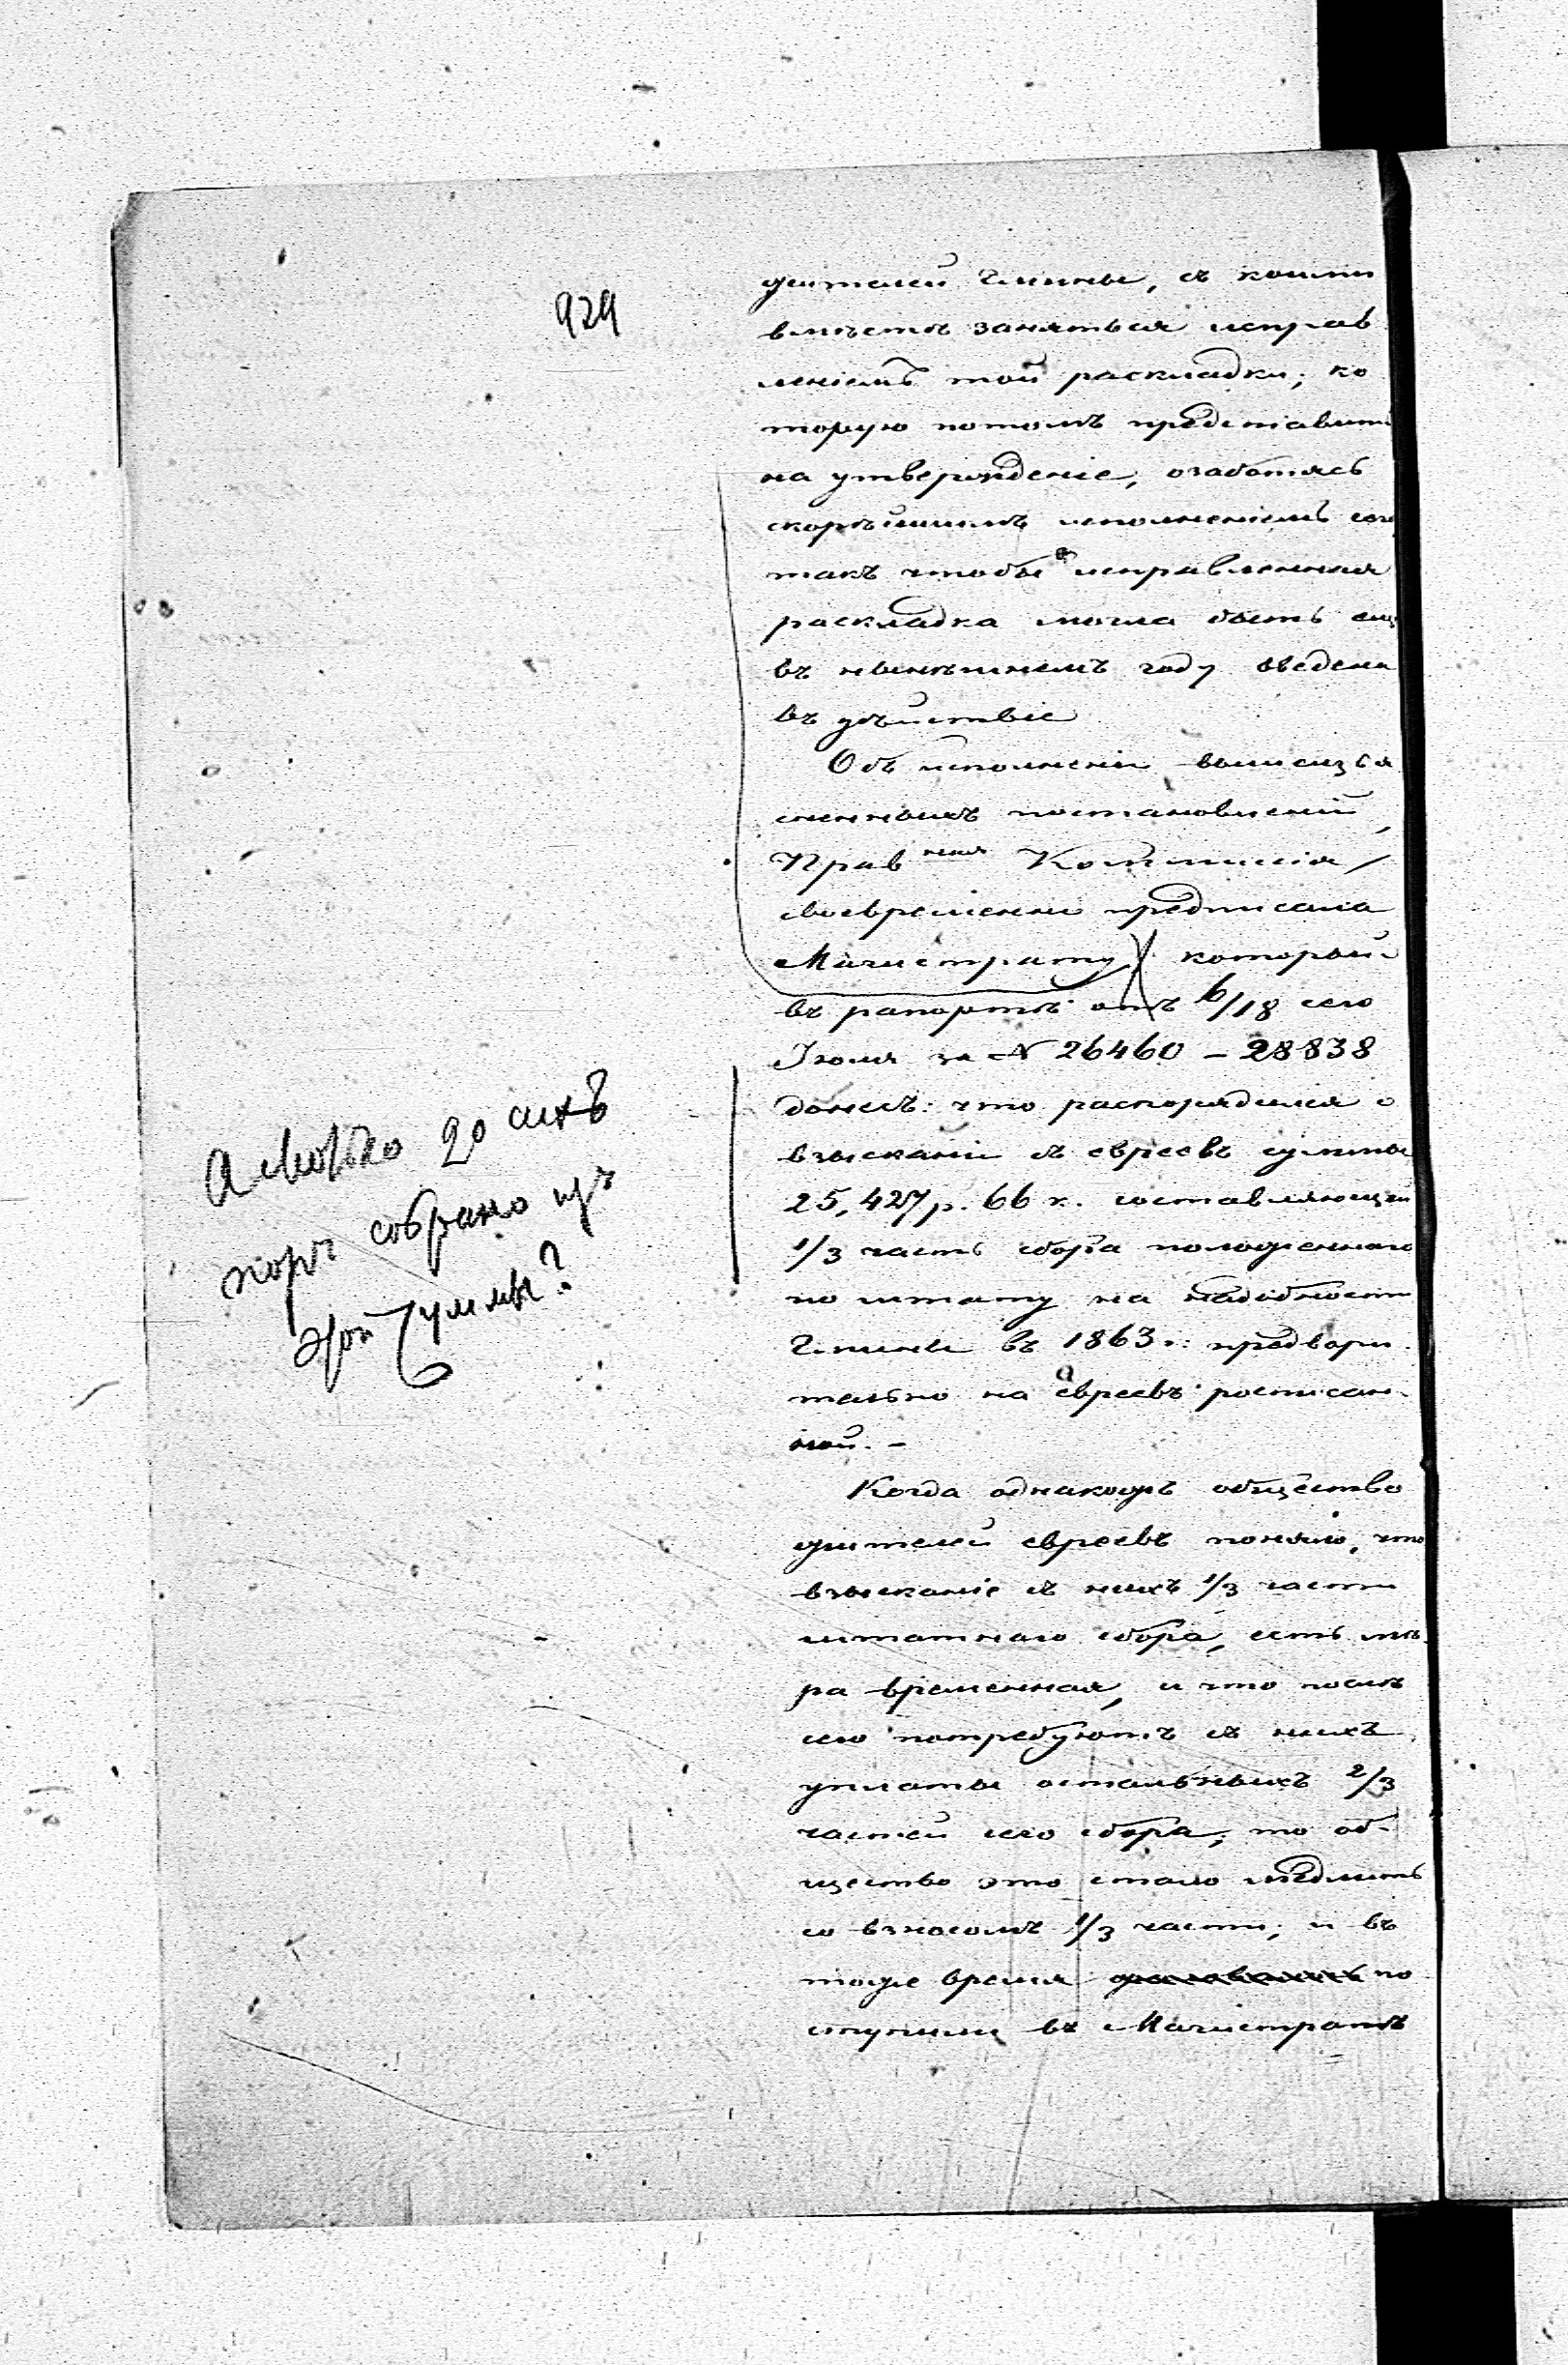 929
жителей Гмины, съ коими
вмѣстѣ заняться исправ
леніемъ той раскладки, ко
торую потомъ представить
на утвержденіе, озаботясь
скорѣйшимъ исполненіемъ сего
такъ чтобы исправленная
раскладка могла быть еще
въ нынѣшнемъ году введена
въ дѣйствіе
Объ исполненіи вышеизъя
сненныхъ постановленій,
Прав ная Коммиссія
своевременно предписала
Магистрату, который
въ рапортѣ отъ 6/18 сего
Іюля за № 26460 – 28838
донесъ: что распорядился о
взысканіи съ евреевъ суммы
25,427 р. 66 к. составляющей
1/3 часть сбора положеннаго
по штату на надобности
Гмины въ 1863 г: предвари
тельно на евреевъ росписан
ной. –
Когда однакожъ общество
жителей евреевъ поняло, что
взысканіе съ нихъ 1/3 части
штатнаго сбора, есть мѣ
ра временная, и что послѣ
сего потребуютъ съ нихъ
уплаты остальныхъ 2/3
частей сего сбора, то об-
щество это стало медлить
со взносомъ 1/3 части, и въ
тоже время по
ступили въ Магистратъ
А сколько до сихъ
поръ собрано изъ
этой суммы?